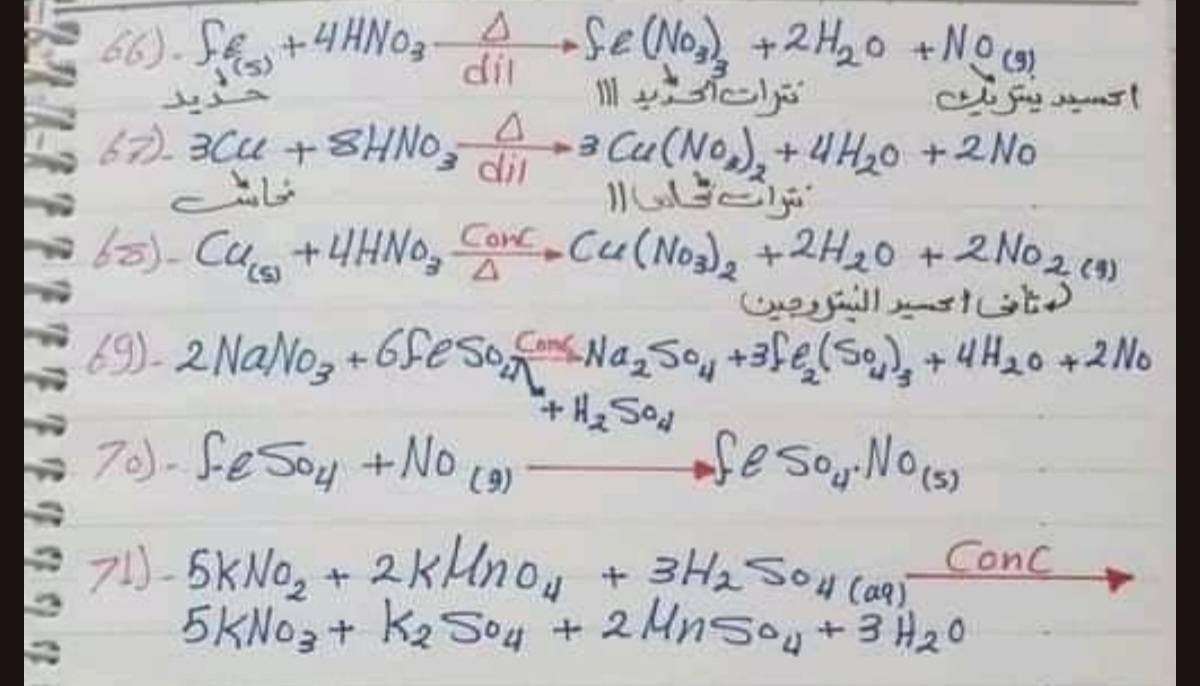 66)- Fe(s) + 4HNO₃ Δ dil → Fe(NO₃)₃ + 2H₂O + NO(g)
حديد نترات الحديد III اكسيد نيتريك
67)- 3Cu + 8HNO₃ Δ dil → 3Cu(NO₃)₂ + 4H₂O + 2NO
نحاس نترات نحاس II
68)- Cu(s) + 4HNO₃ Conc Δ → Cu(NO₃)₂ + 2H₂O + 2NO₂(g)
ثانى اكسيد النيتروجين
69)- 2NaNO₃ + 6FeSO₄ Conc → Na₂SO₄ + 3Fe₂(SO₄)₃ + 4H₂O + 2NO
+ H₂SO₄
70)- FeSO₄ + NO(g) → FeSO₄.NO(s)
71)- 5KNO₂ + 2KMnO₄ + 3H₂SO₄(aq) Conc →
5KNO₃ + K₂SO₄ + 2MnSO₄ + 3H₂O